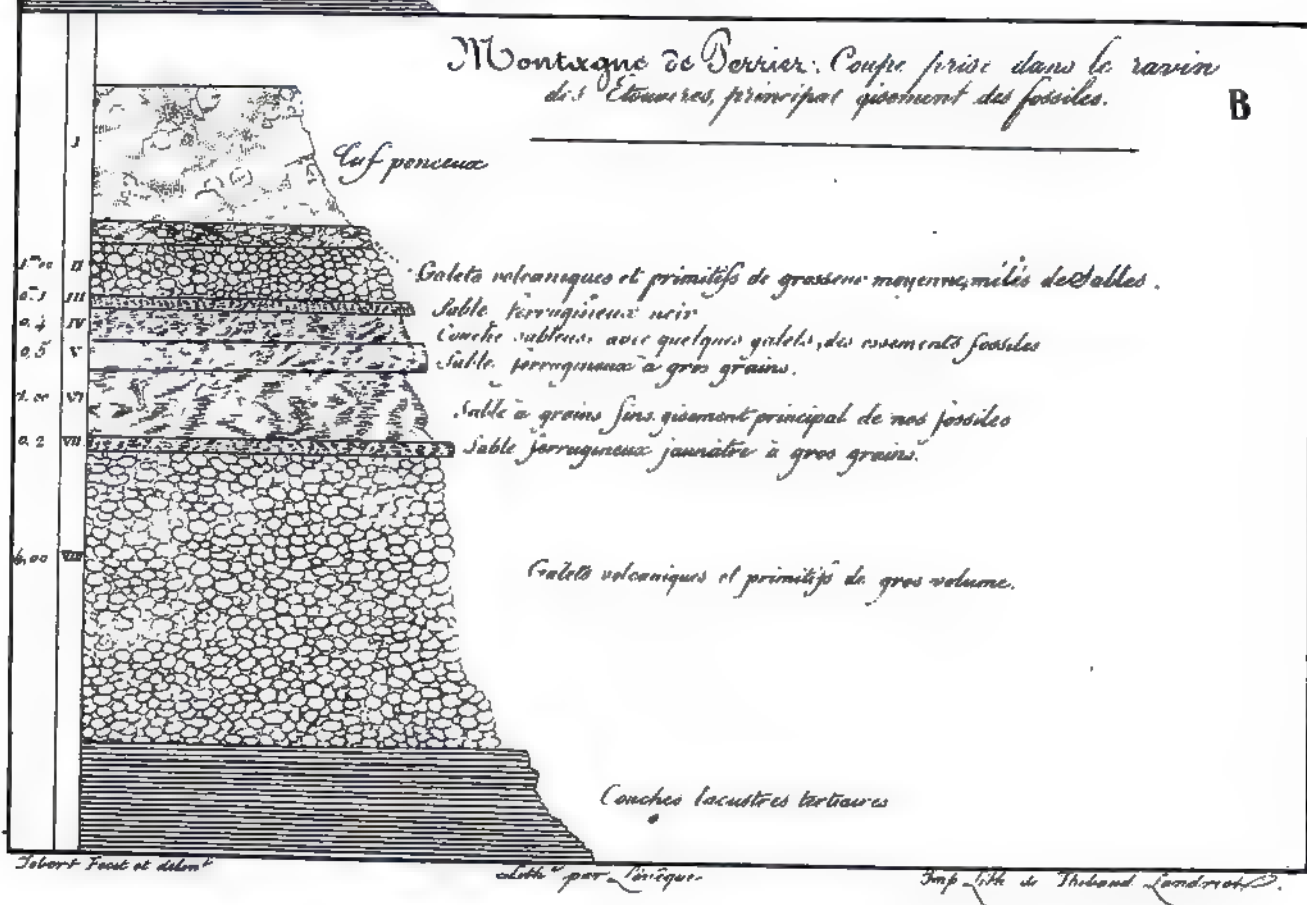 Montagne de Perrier: Coupe prise dans le ravin
des Etouaires, principal gisement des fossiles.
B
I
Tuf ponceux
1m00 II
Galets volcaniques et primitifs de grosseur moyenne, mêlés de Sables.
III
Sable ferrugineux noir
0,4 IV
Couche sableuse avec quelques galets, des ossements fossiles
0,5 V
Sable ferrugineux à gros grains.
1,00 VI
Sable à grains fins gisement principal de nos fossiles
0,2 VII
Sable ferrugineux jaunâtre à gros grains.
VIII
Galets volcaniques et primitifs de gros volume.
Couches lacustres tertiaires
Jobert Fecit et delint
Lithé par Lévêque
Imp Lith de Thibaud Landriot